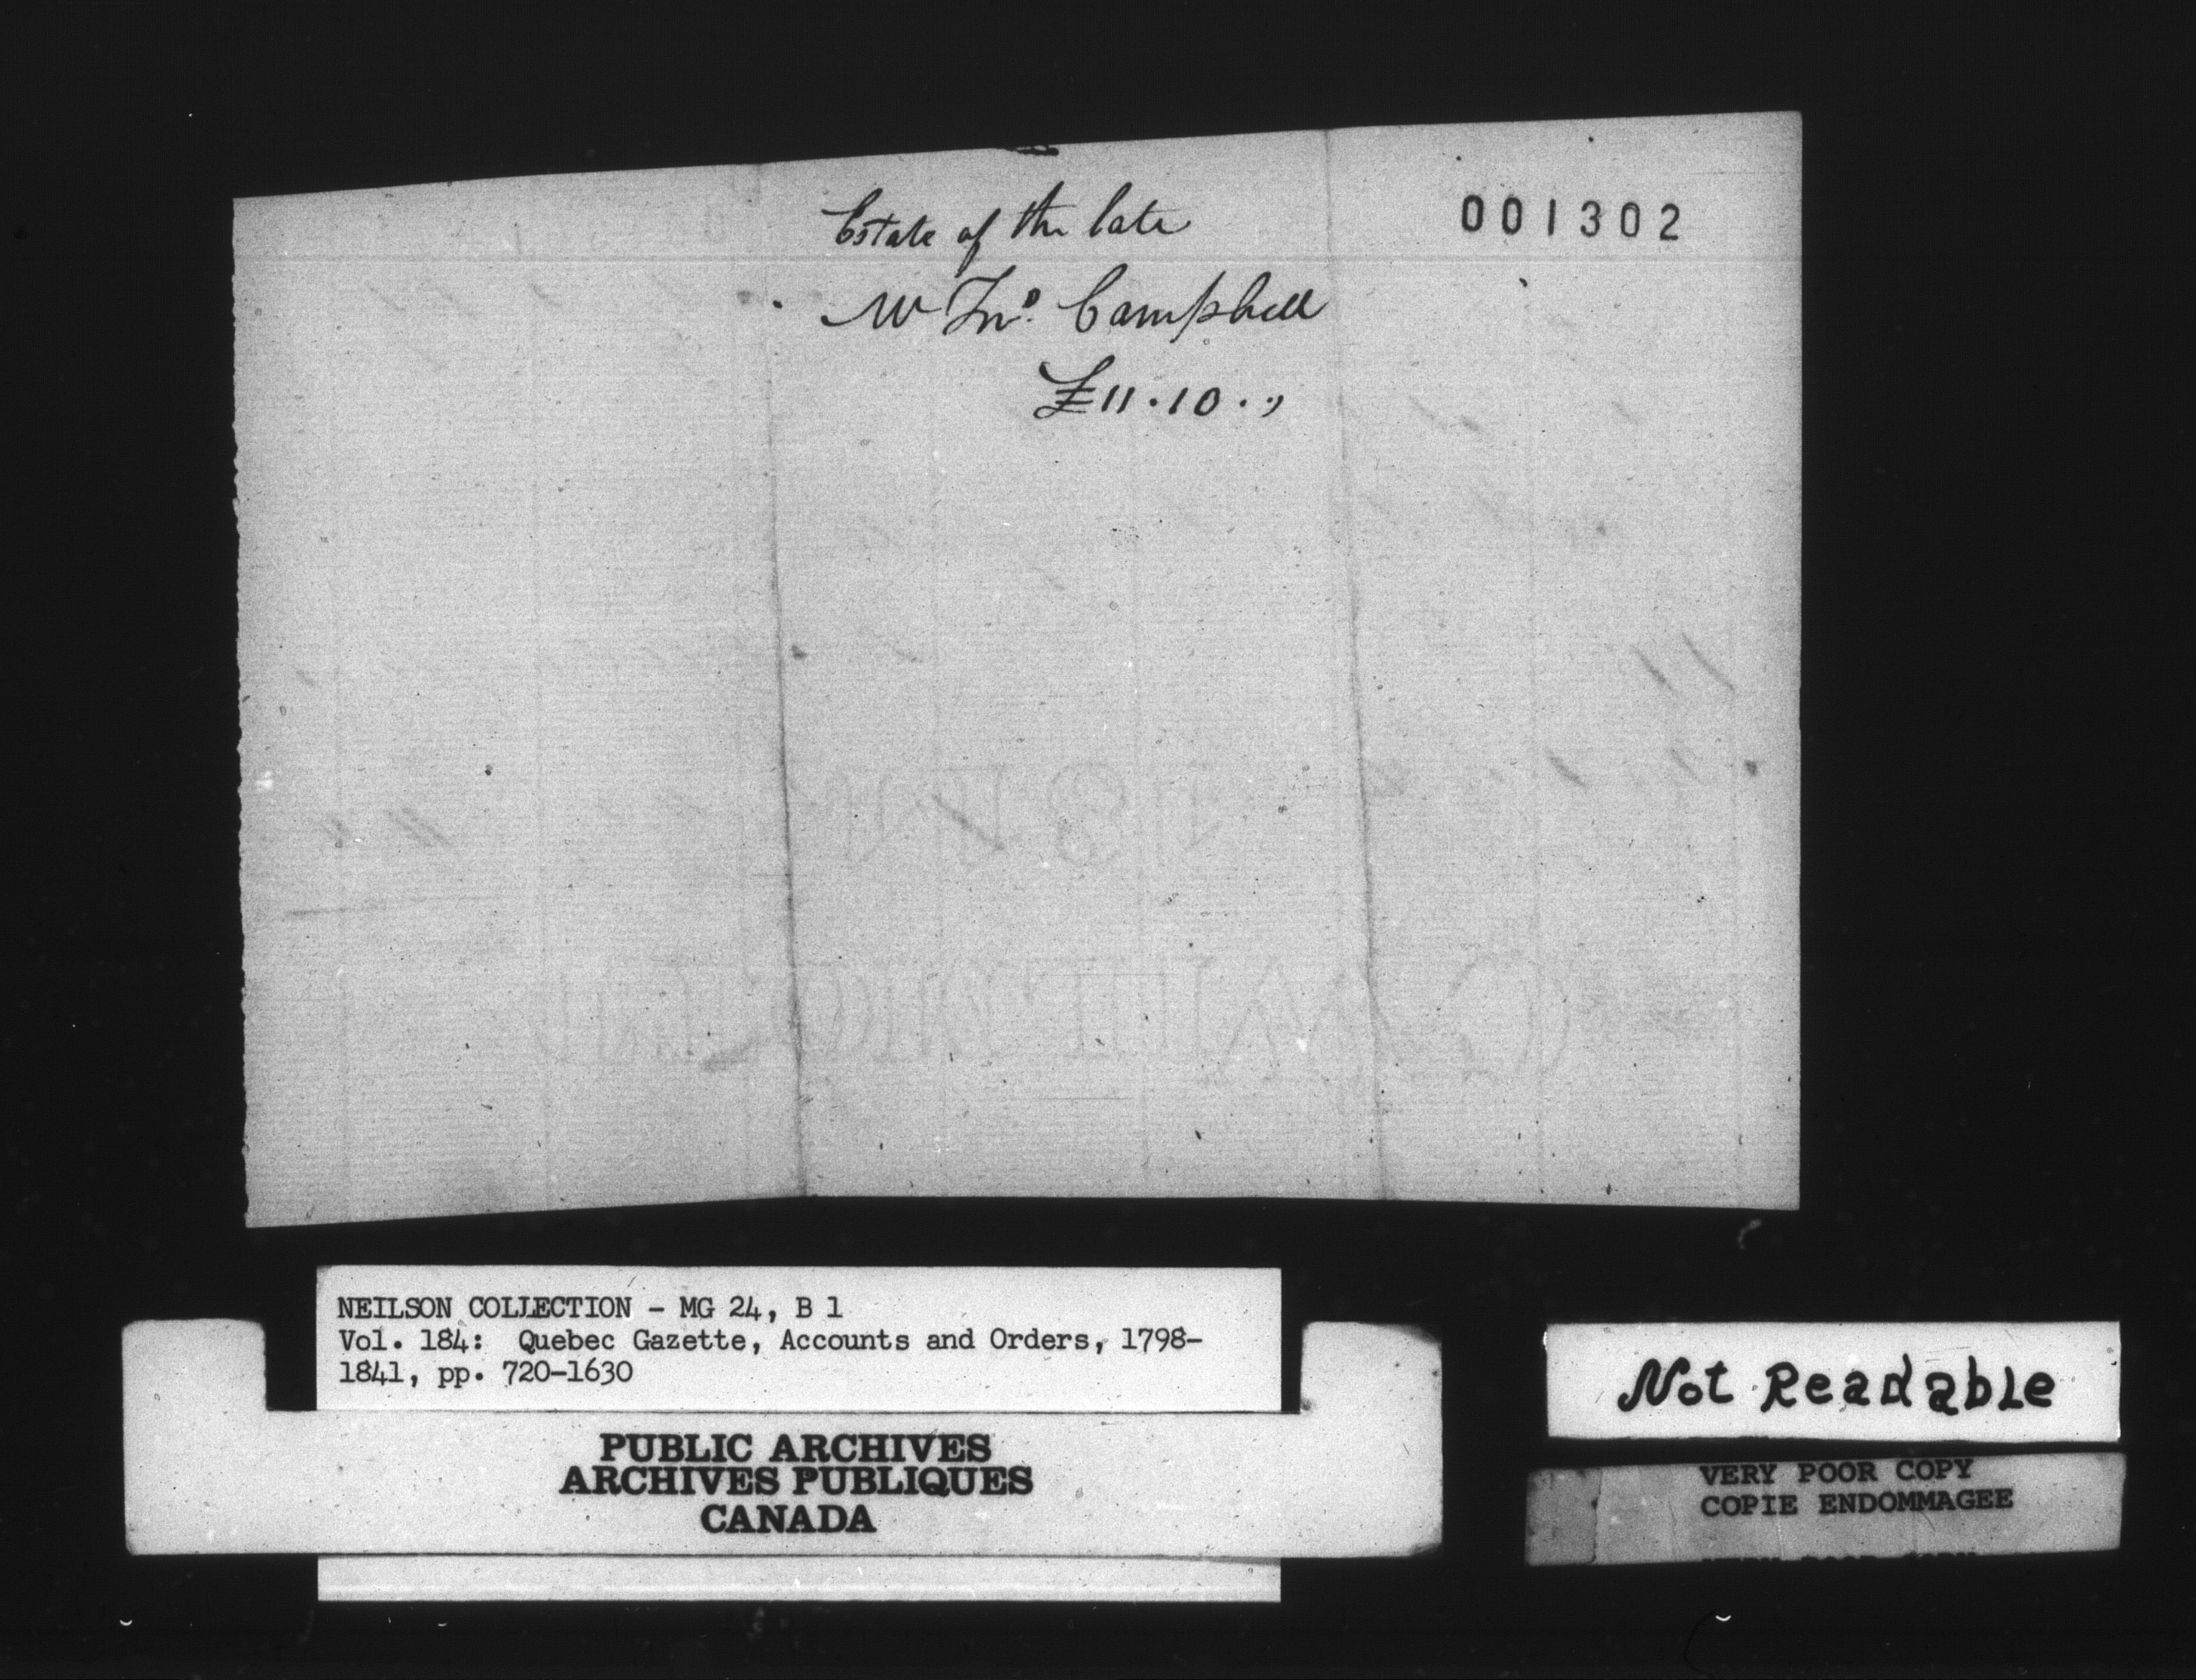 Estate of the late
001302
Mr Jno. Campbell
£11.10.,,
NEILSON COLLECTION - MG 24, B 1
Vol. 184: Quebec Gazette, Accounts and Orders, 1798-
1841, pp. 720-1630
PUBLIC ARCHIVES
ARCHIVES PUBLIQUES
CANADA
Not Readable
VERY POOR COPY
COPIE ENDOMMAGEE